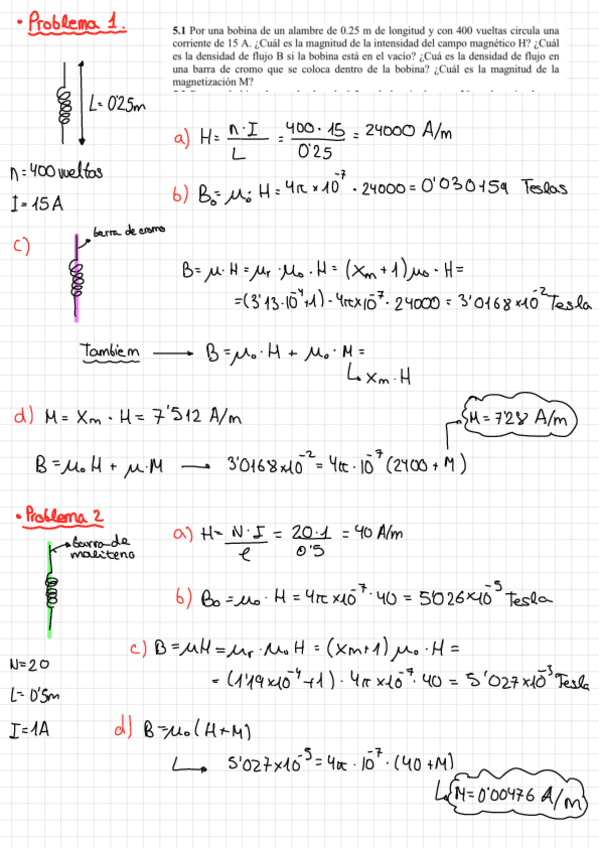 • Problema 1.
5.1 Por una bobina de un alambre de 0.25 m de longitud y con 400 vueltas circula una
corriente de 15 A. ¿Cuál es la magnitud de la intensidad del campo magnético H? ¿Cuál
es la densidad de flujo B si la bobina está en el vacío? ¿Cuá es la densidad de flujo en
una barra de cromo que se coloca dentro de la bobina? ¿Cuál es la magnitud de la
magnetización M?
L=0'25m
n=400 vueltas
I=15A
a) H = n·I / L = 400·15 / 0'25 = 24000 A/m
b) B₀=μ₀·H=4π×10⁻⁷·24000=0'030159 Teslas
c)
barra de cromo
B=μ·H=μr·μ₀·H=(Xm+1)μ₀·H=
=(3'13·10⁻⁴+1)·4π×10⁻⁷·24000=3'0168×10⁻² Tesla
Tambiem → B=μ₀·H+μ₀·M=
↳ Xm·H
d) M=Xm·H=7'512 A/m
M=7'28 A/m
B=μ₀H+μ·M → 3'0168×10⁻²=4π·10⁻⁷(2400+M)
• Problema 2
barra de
maliteno
a) H= N·I / l = 20·1 / 0'5 = 40 A/m
b) B₀=μ₀·H=4π×10⁻⁷·40=5'026×10⁻⁵ Tesla
N=20
L=0'5m
I=1A
c) B=μH=μr·μ₀H=(Xm+1)μ₀·H=
=(1'19×10⁻⁴+1)·4π×10⁻⁷·40=5'027×10⁻³ Tesla
d) B=μ₀(H+M)
↳ 5'027×10⁻⁵=4π·10⁻⁷·(40+M)
↳ M=0'00476 A/m